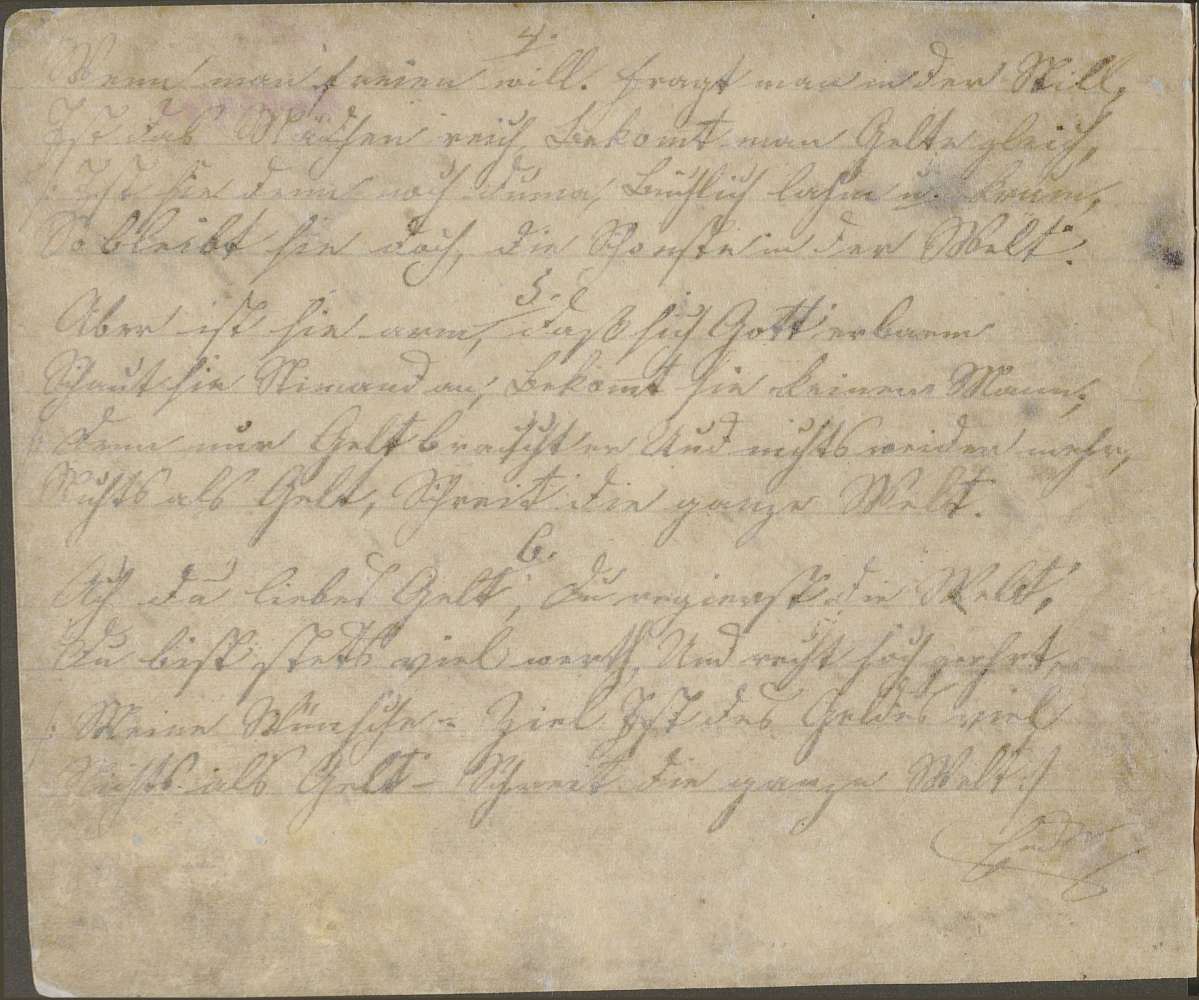 4.
Wenn man freien will. fragt man in der Still,
Ist das Mädchen reich, Bekomt man Gelte gleich,
/: Ist sie denn noch dumm, lahm u. krum,
So bleibt sie doch, die Schonste in der Welt.
5.
Aber ist sie arm, daß sich Gott erbarm
Schaut sie Nimand an, Bekomt sie keinen Mann,
/: Denn nur Gelt braucht er Und nichts weider mehr,
Nichts als Gelt, Schreit die ganze Welt.
6.
Ach du liebes Gelt, Du regierst die Welt,
Du bist stetts viel werth, Und recht hoch geehrt,
/: Meine Wünsche = Ziel Ist des Geldes viel
Nichts als Gelt – Schreit die ganze Welt :/
Ende